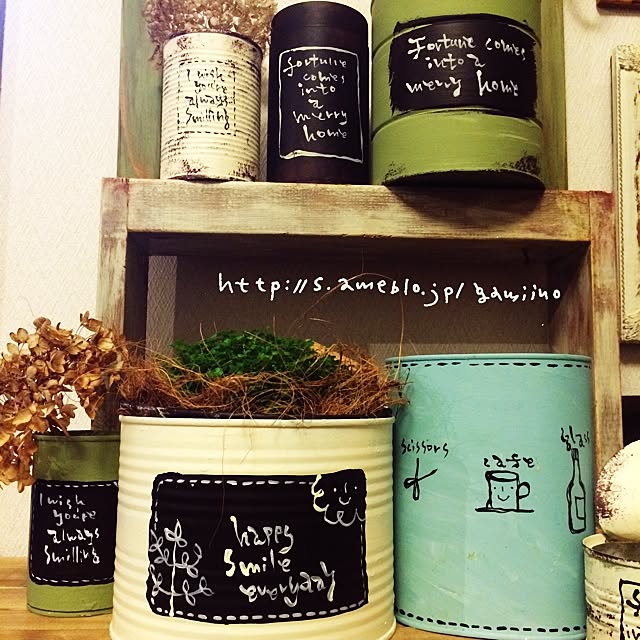 I wish
you're
always
smiling
fortune
comes
into
a
merry
home
Fortune comes
into a
merry home
http://s.ameblo.jp/
I wish
you're
always
smiling
happy
smile
everyday
scissors
cafe
glass